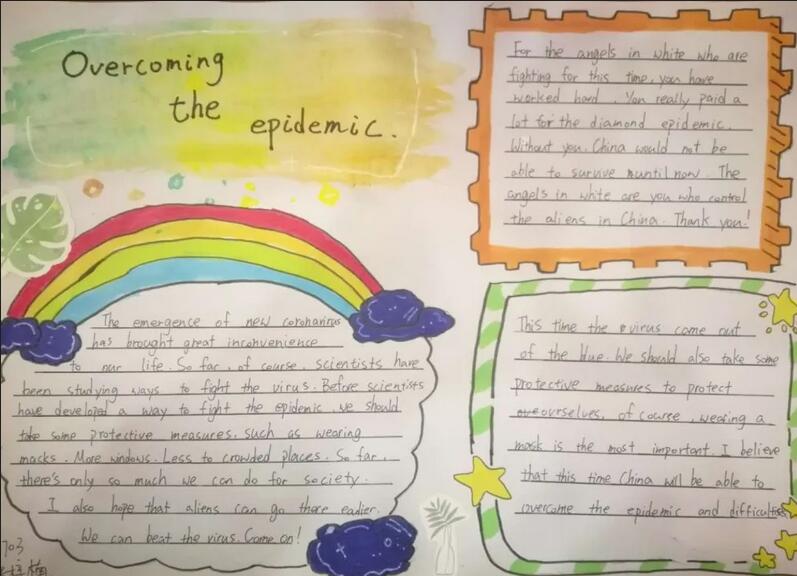 Overcoming
the
epidemic.
For the angels in white who are
fighting for this time, you have
worked hard. You really paid a
lot for the diamond epidemic.
Without you. China would not be
able to survive nuntil now. The
angels in white are you who control
the aliens in China. Thank you!
The emergence of new coronavirus
has brought great inconvenience
to our life. So far, of course, scientists have
been studying ways to fight the virus. Before scientists
have developed a way to fight the epidemic, we should
take some protective measures. such as wearing
masks. More windows. Less to crowded places. So far,
there's only so much we can do for society.
I also hope that aliens can go there eadier.
We can beat the virus. Come on!
This time the virus come out
of the blue. We should also take some
protective measures to protect
ourselves, of course, wearing a
mask is the most important. I believe
that this time China will be able to
overcome the epidemic and difficulties
703
梅